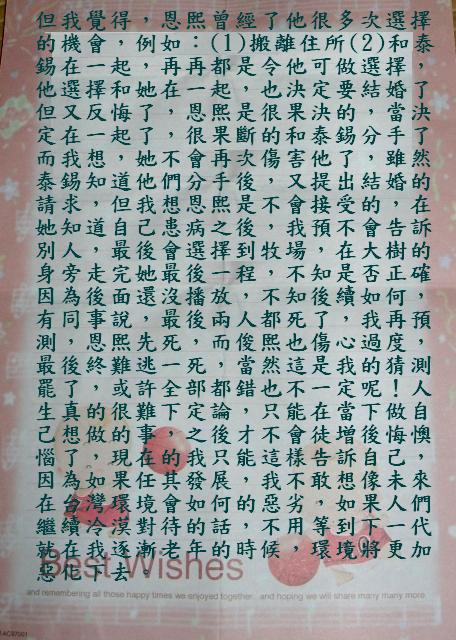 但我覺得，恩熙曾經了他很多次選擇
的機會，例如：(1)搬離住所(2)和泰
錫在一起，再再都是令他可做選擇，
他選擇和她在一起，也決定要結婚了
但又反悔了，恩熙是很果決的，當決
定在一起了，很果斷的和泰錫分手了
而我想，她不會再次傷害他了，雖然
泰錫知道他們分手後，又提出結婚的
請求，但我想恩熙是不會接受的，在
她知道自己患病之後，我預不會告訴
別人，最後會選擇到牧場，在大樹的
身旁，走完她最後一程，不知是否正確
因為後面還沒播放，不知後續如何，
有同事說，最後兩人都死了，我再預
測，恩熙先死，而俊熙也傷心過度，
最後終難逃一死，當然這是我的猜測
罷了，或許全部都錯也不一定呢！人
生真的很難下定論，只能在當下做自
己想做的事，之後才不會徒增後悔懊
惱了，現在的我只能這樣告訴自己，
因為如果任其發展，我不敢想像未來
在台灣環境會如何的惡劣，如果人們
繼續冷漠對待的話，不用等到下一代
就在我逐漸老年的時候，環境將更加
惡化下去。
Best Wishes
and remembering all those happy times we enjoyed together and hoping we will share many many more.